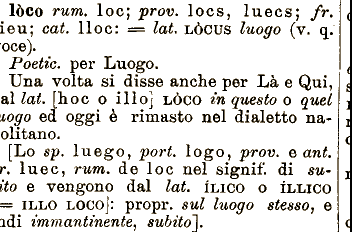 lòco rum. loc; prov. locs, luecs; fr.
ieu; cat. lloc: = lat. LÒCUS luogo (v. q.
oce).
Poetic. per Luogo.
Una volta si disse anche per Là e Qui,
al lat. [hoc o illo] LÒCO in questo o quel
uogo ed oggi è rimasto nel dialetto na-
olitano.
[Lo sp. luego, port. logo, prov. e ant.
r. luec, rum. de loc nel signif. di su-
ito e vengono dal lat. ÍLICO o ÍLLICO
= ILLO LOCO]: propr. sul luogo stesso, e
ndi immantinente, subito].